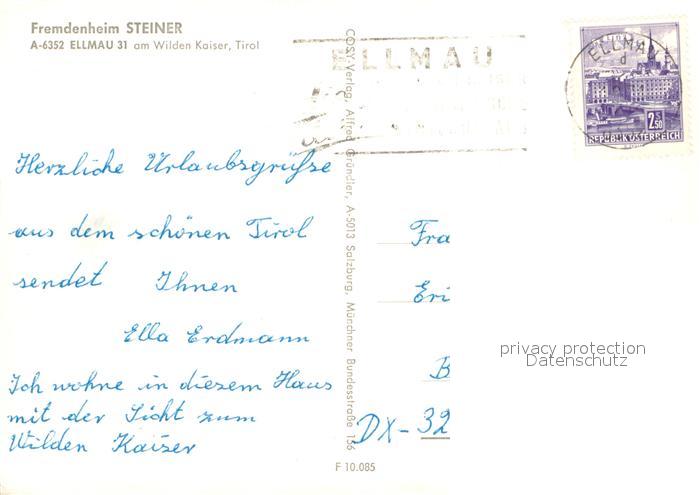 Fremdenheim STEINER
A-6352 ELLMAU 31 am Wilden Kaiser, Tirol
ELLMAU
ELLMAU
d
2.50
REPUBLIK ÖSTERREICH
Herzliche Urlaubsgrüße
aus dem schönen Tirol
sendet Ihnen
Ella Erdmann
Ich wohne in diesem Haus
mit der Sicht zum
Wilden Kaiser
COSY-Verlag, Alfred Gründler, A-5013 Salzburg, Münchner Bundesstraße 156
F 10.085
Fra
Eri
B
DX-32
privacy protection
Datenschutz